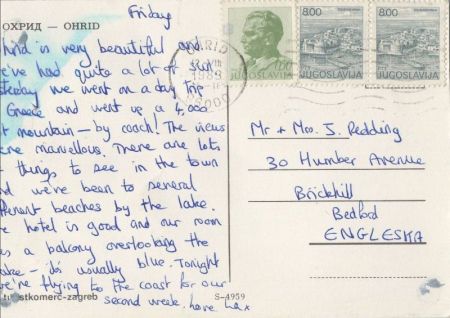 Friday
ОХРИД — OHRID
hrid is very beautiful and
e've had quite a lot of sun
sterday we went on a day trip
Greece and went up a 4,000
t mountain — by coach! The views
ere marvellous. There are lots
things to see in the town
nd we've been to several
fferent beaches by the lake.
e hotel is good and our room
as a balcony overlooking the
ake – it's usually blue. Tonight
we're flying to the coast for our
second week. love
turistkomerc-zagreb
S-4959
OHRID
1983
96000
0.50
JUGOSLAVIJA
8.00
JUGOSLAVIJA
8.00
JUGOSLAVIJA
Mr + Mrs. J. Redding
30 Humber Avenue
Brickhill
Bedford
ENGLESKA